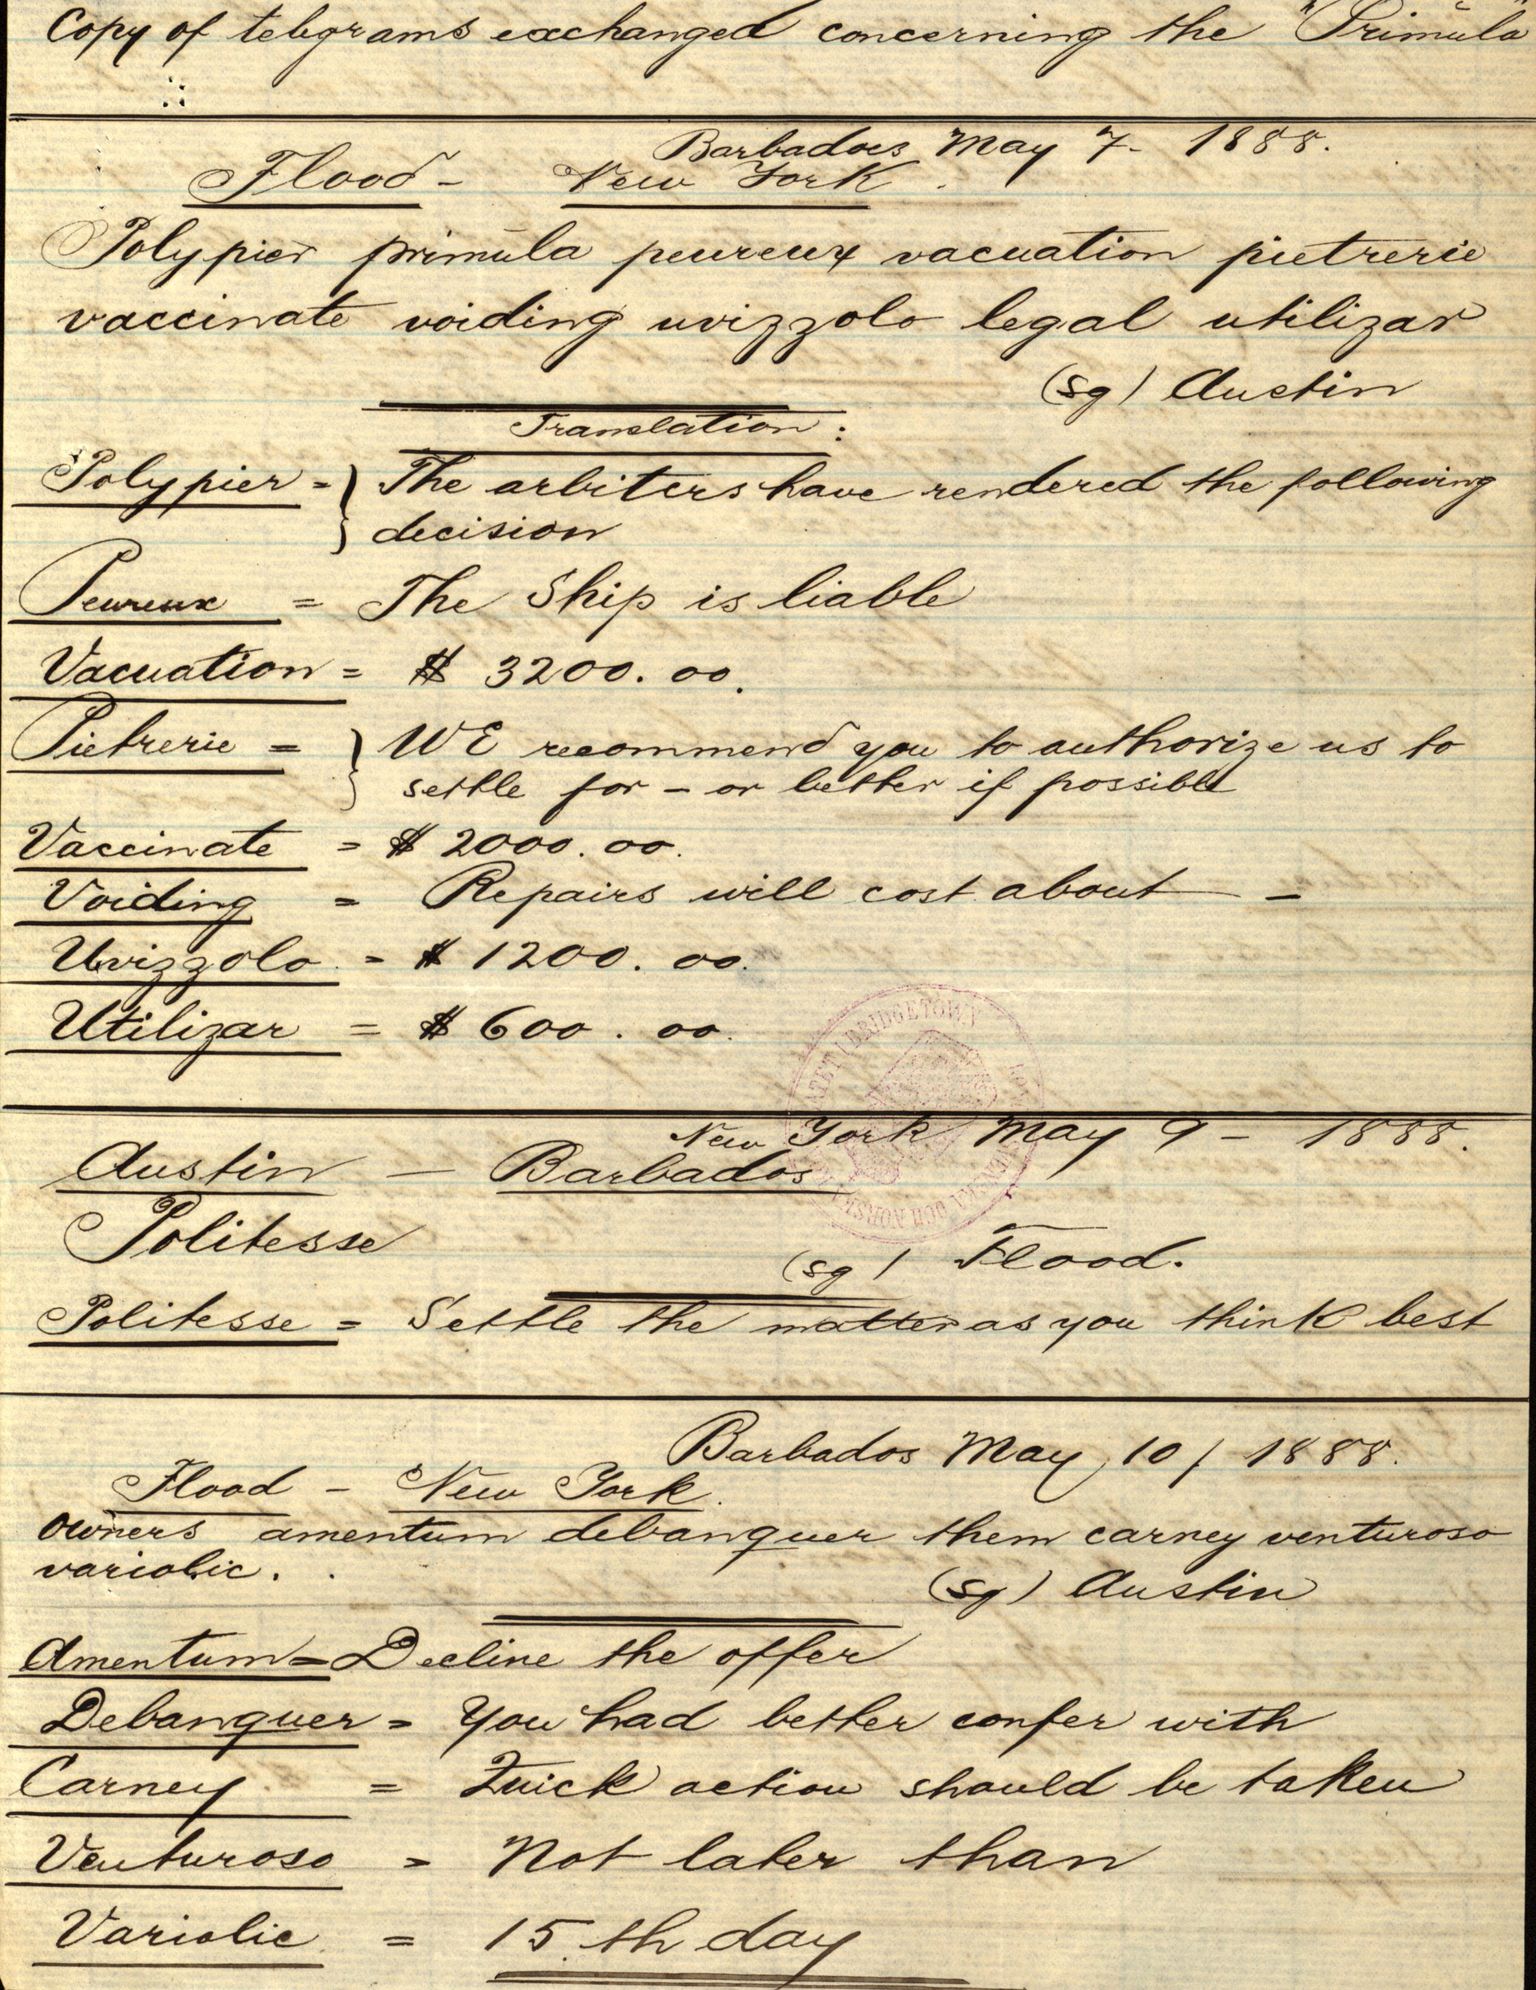 Copy of telegrams exchanged concerning the "Primula"
Barbados May 7 - 1888.
Flood - New York.
Polypier primula peureux vacuation pietrerie
vaccinate voiding uvizzolo legal utilizar
(sg) Austin
Translation:
Polypier = } The arbiters have rendered the following
decision
Peureux = The Ship is liable
Vacuation = $ 3200.00.
Pietrerie = } WE recommend you to authorize us to
settle for - or better if possible
Vaccinate = $ 2000.00.
Voiding = Repairs will cost about -
Uvizzolo = $ 1200.00.
Utilizar = $ 600.00.
BRIDGETOWN
OCH NORSKA
New York May 9 - 1888.
Austin - Barbados
Politesse
(sg) Flood.
Politesse = Settle the matter as you think best
Barbados May 10/ 1888.
Flood - New York.
Owners amentum debanquer them carney venturoso
variolic.
(sg) Austin
Amentum = Decline the offer
Debanquer = You had better confer with
Carney = Quick action should be taken
Venturoso = Not later than
Variolic = 15th day